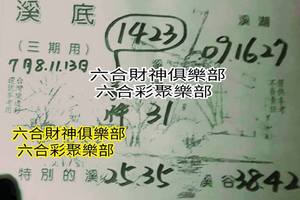 溪底
溪湖
1423
(三期用)
091627
7月8.11.13日
六合財神俱樂部
六合彩聚樂部
將 31
六合財神俱樂部
六合彩聚樂部
特別的溪 25.35
溪谷 38.42